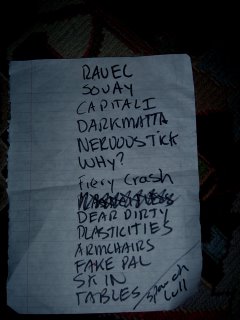 RAVEL
SOVAY
CAPITAL I
DARKMATTA
NERVOUSTICK
WHY?
Fiery Crash
DEAR DIRTY
PLASTICITIES
ARMCHAIRS
FAKE PAL
SKIN
TABLES
lull